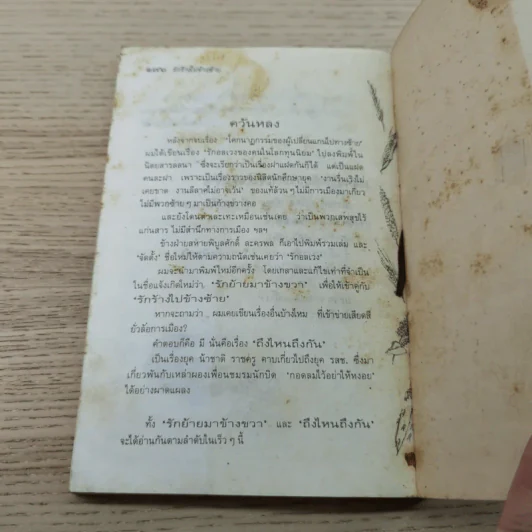 ๒๗๒ รักร้างไปข้างซ้าย
ควันหลง
หลังจากจบเรื่อง "โศกนาฏกรรมของผู้เปลี่ยนแกนไปทางซ้าย"
ผมได้เขียนเรื่อง 'รักอลเวงของคนในโลกทุนนิยม' ไปลงพิมพ์ใน
นิตยสารลลนา ซึ่งจะเรียกว่าเป็นเรื่องฝาแฝดกันก็ได้ แต่เป็นแฝด
คนละฝา เพราะเป็นเรื่องราวของนิสิตนักศึกษายุค 'งานรื่นเริงไม่
เคยขาด งานลีลาศไม่อาจเว้น' ของแท้ล้วนๆ ไม่มีการเมืองมาเกี่ยว
ไม่มีพวกซ้ายๆ มาเป็นก้างขวางคอ
และยังโดนด่าเละเทะเหมือนเช่นเคย ว่าเป็นพวกเสพสุขไร้
แก่นสาร ไม่มีสำนึกทางการเมือง ฯลฯ
ข้างฝ่ายสหายพิบูลศักดิ์ ละครพล ก็เอาไปพิมพ์รวมเล่ม และ
'จัดตั้ง' ชื่อใหม่ให้ตามความถนัดเช่นเคยว่า 'รักอลเวง'
ผมจะนำมาพิมพ์ใหม่อีกครั้ง โดยเกลาและแก้ไขเท่าที่จำเป็น
ในชื่อแจ้งเกิดใหม่ว่า 'รักย้ายมาข้างขวา' เพื่อให้เข้าคู่กับ
'รักร้างไปข้างซ้าย'
หากจะถามว่า ผมเคยเขียนเรื่องอื่นบ้างไหม ที่เข้าข่ายเสียดสี
ยั่วล้อการเมือง?
คำตอบก็คือ มี นั่นคือเรื่อง 'ถึงไหนถึงกัน'
เป็นเรื่องยุค น้าชาติ ราชครู คาบเกี่ยวไปถึงยุค รสช. ซึ่งมา
เกี่ยวพันกับเหล่าผองเพื่อนชมรมนักปิด 'กอดลมไว้อย่าให้หงอย'
ได้อย่างผาดแผลง
ทั้ง 'รักย้ายมาข้างขวา' และ 'ถึงไหนถึงกัน'
จะได้อ่านกันตามลำดับในเร็วๆ นี้